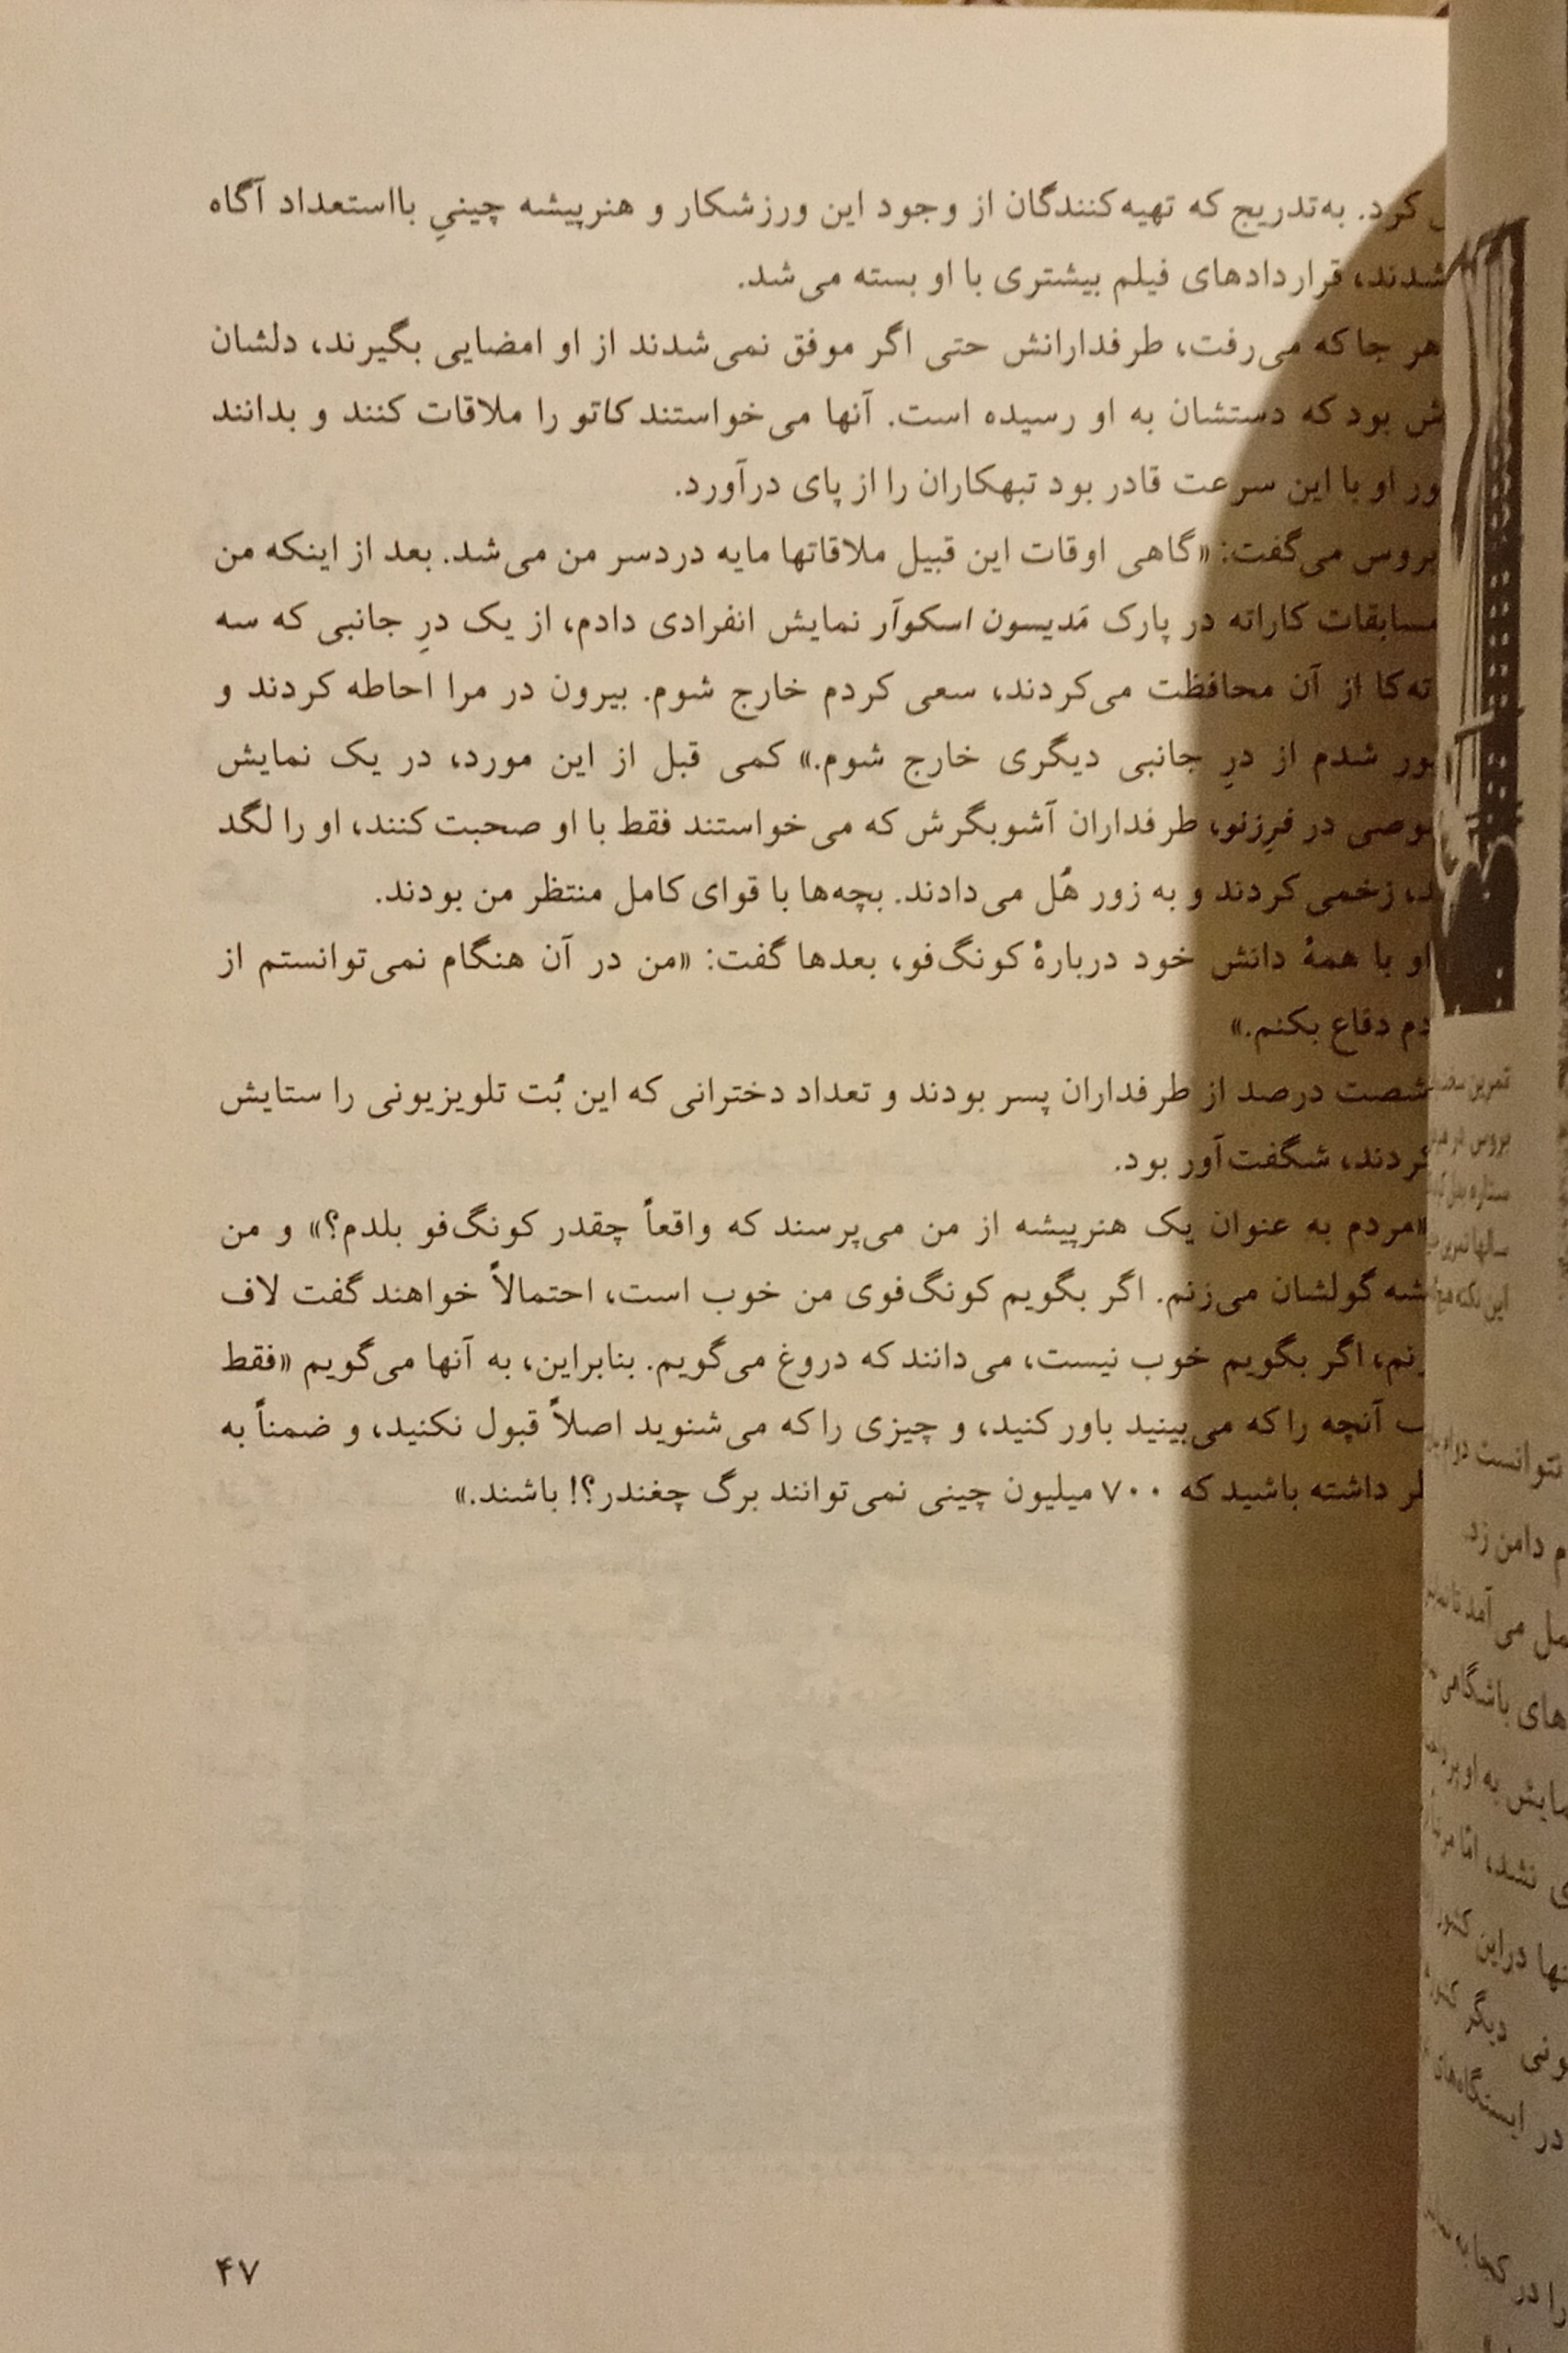 کرد. به‌تدریج که تهیه‌کنندگان از وجود این ورزشکار و هنرپیشه چینیِ بااستعداد آگاه
شدند، قراردادهای فیلم بیشتری با او بسته می‌شد.
هر جا که می‌رفت، طرفدارانش حتی اگر موفق نمی‌شدند از او امضایی بگیرند، دلشان
بود که دستشان به او رسیده است. آنها می‌خواستند کاتو را ملاقات کنند و بدانند
او با این سرعت قادر بود تبهکاران را از پای درآورد.
بروس می‌گفت: «گاهی اوقات این قبیل ملاقاتها مایه دردسر من می‌شد. بعد از اینکه من
مسابقات کاراته در پارک مَدیسون اسکوآر نمایش انفرادی دادم، از یک درِ جانبی که سه
از آن محافظت می‌کردند، سعی کردم خارج شوم. بیرون در مرا احاطه کردند و
شدم از درِ جانبی دیگری خارج شوم.» کمی قبل از این مورد، در یک نمایش
در فرِزنو، طرفداران آشوبگرش که می‌خواستند فقط با او صحبت کنند، او را لگد
زخمی کردند و به زور هُل می‌دادند. بچه‌ها با قوای کامل منتظر من بودند.
او با همهٔ دانش خود دربارهٔ کونگ‌فو، بعدها گفت: «من در آن هنگام نمی‌توانستم از
دفاع بکنم.»
شصت درصد از طرفداران پسر بودند و تعداد دخترانی که این بُت تلویزیونی را ستایش
شگفت‌آور بود.
«مردم به عنوان یک هنرپیشه از من می‌پرسند که واقعاً چقدر کونگ‌فو بلدم؟» و من
گولشان می‌زنم. اگر بگویم کونگ‌فوی من خوب است، احتمالاً خواهند گفت لاف
اگر بگویم خوب نیست، می‌دانند که دروغ می‌گویم. بنابراین، به آنها می‌گویم «فقط
آنچه را که می‌بینید باور کنید، و چیزی را که می‌شنوید اصلاً قبول نکنید، و ضمناً به
داشته باشید که ۷۰۰ میلیون چینی نمی‌توانند برگ چغندر؟! باشند.»
۴۷